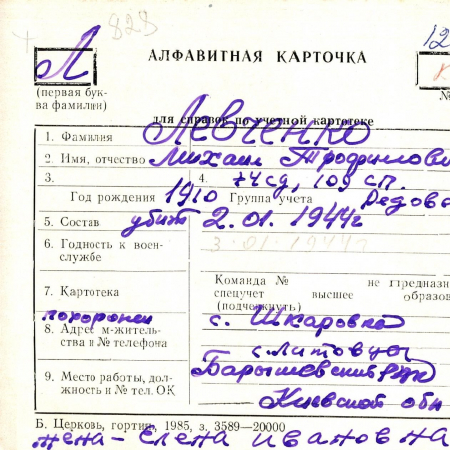 828
АЛФАВИТНАЯ КАРТОЧКА
12
Л
К
(первая бук-
ва фамилии)
№
для справок по учетной картотеке
1. Фамилия ЛЕВЧЕНКО
2. Имя, отчество Михаил Трофимови
3. 4. 74 сд, 109 сп.
Год рождения 1910 Группа учета Рядово
5. Состав убит 2.01.1944г
6. Годность к воен- 3.01.1944г
службе
Команда № не предназн
7. Картотека спецучет высшее образов
(подчеркнуть)
похоронен с. Шкаровка
8. Адрес м-житель-
ства и № телефона с. Литовцы
Барышевский р-н
9. Место работы, дол-
жность и № тел. ОК Киевской обл
Б. Церковь, гортип, 1985, з. 3589—20000
жена - Елена Ивановна